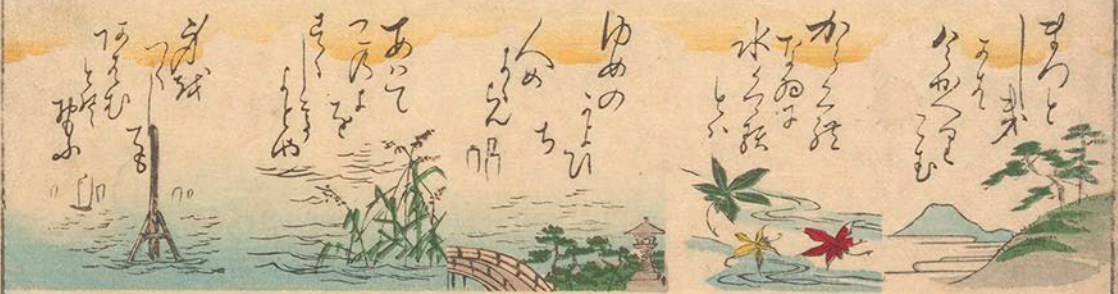 まつと
しき
かは
今かへりこむ
からくれ
なゐに
水くくる
とは
ゆめの
かよひ
ち
人め
よくらん
あはて
このよ
を
すくし
てよとや
身を
つくし
ても
あはむ
とそ
おもふ